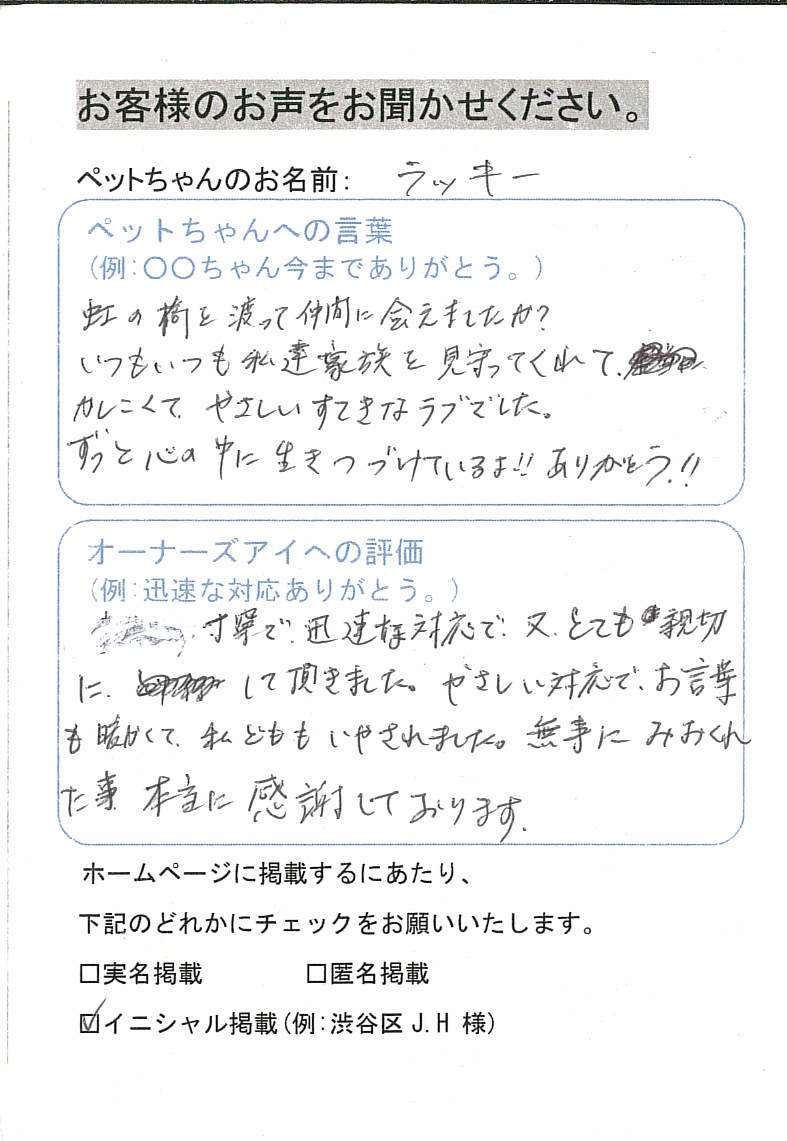 お客様のお声をお聞かせください。
ペットちゃんのお名前: ラッキー
ペットちゃんへの言葉
(例:〇〇ちゃん今までありがとう。)
虹の橋を渡って仲間に会えましたか?
いつもいつも私達家族を見守ってくれて、
かしこくて、やさしいすてきなラブでした。
ずっと心の中に生きつづけているよ!! ありがとう!!
オーナーズアイへの評価
(例:迅速な対応ありがとう。)
丁寧で、迅速な対応で、又、とても親切
に、して頂きました。やさしい対応で、お言葉
も暖かくて、私どももいやされました。無事にみおくれ
た事、本当に感謝しております。
ホームページに掲載するにあたり、
下記のどれかにチェックをお願いいたします。
□実名掲載 □匿名掲載
☑イニシャル掲載(例:渋谷区 J.H 様)